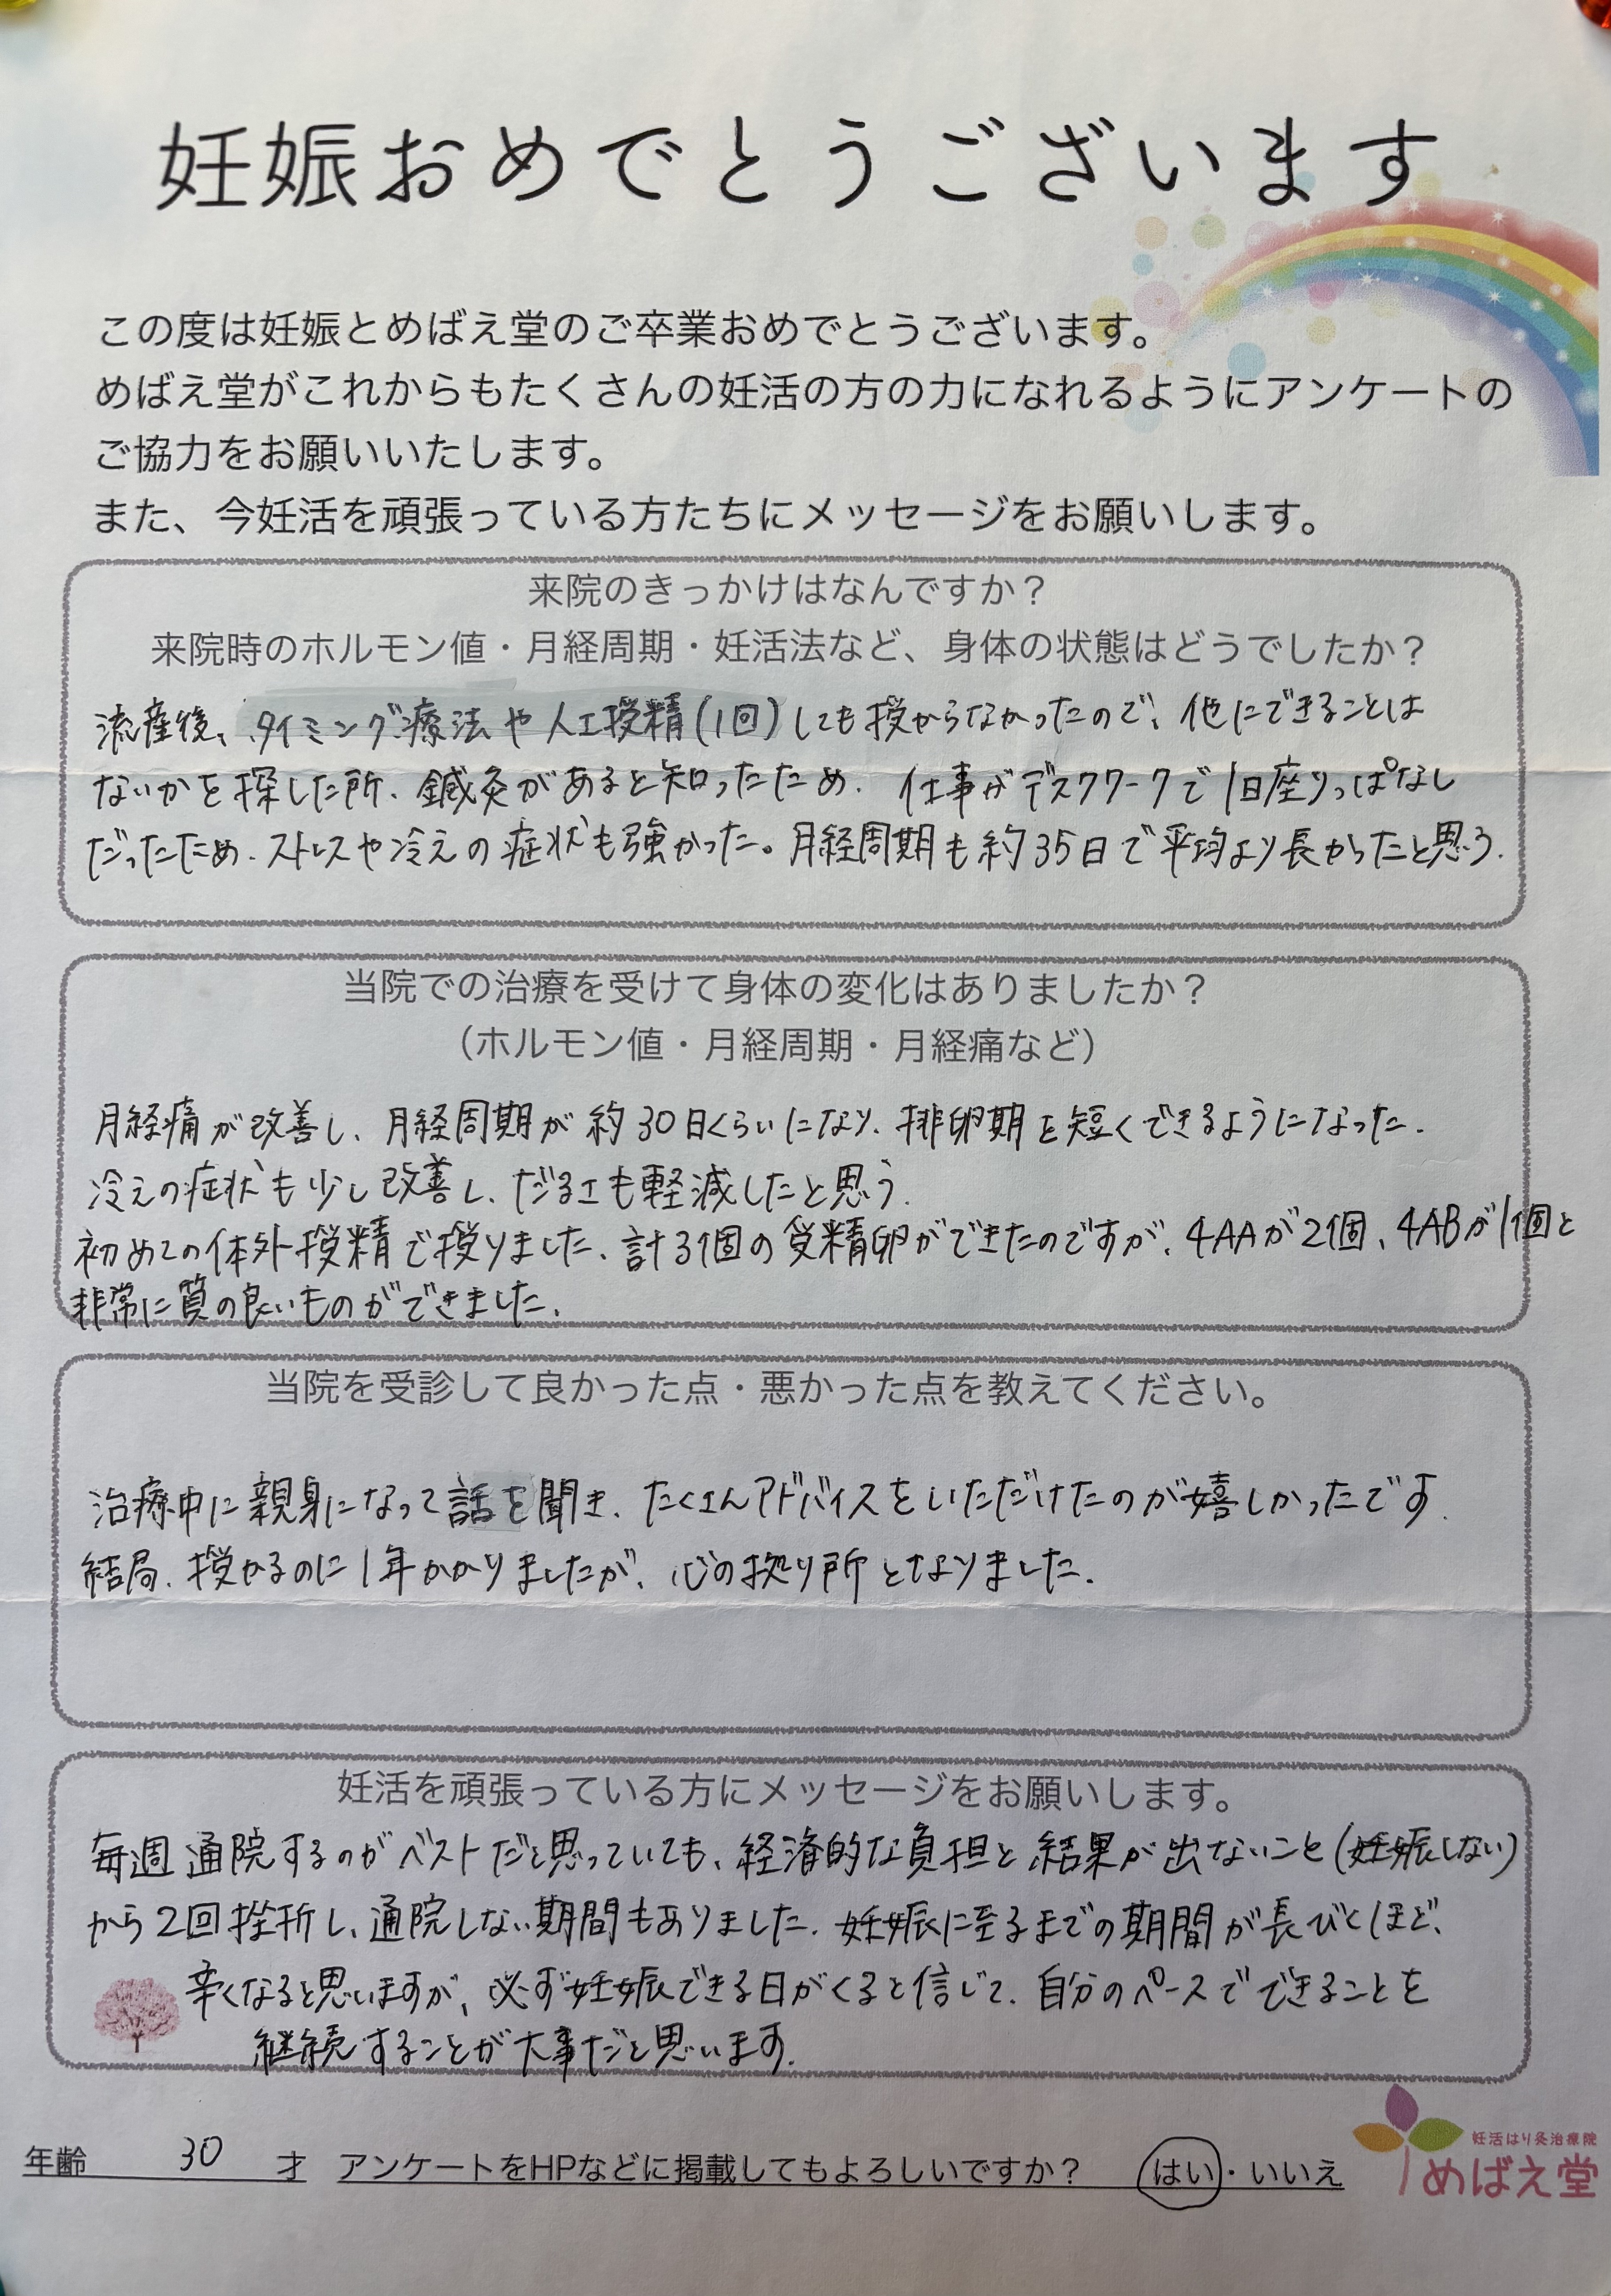 妊娠おめでとうございます
この度は妊娠とめばえ堂のご卒業おめでとうございます。
めばえ堂がこれからもたくさんの妊活の方の力になれるようにアンケートの
ご協力をお願いいたします。
また、今妊活を頑張っている方たちにメッセージをお願いします。
来院のきっかけはなんですか？
来院時のホルモン値・月経周期・妊活法など、身体の状態はどうでしたか？
流産後、タイミング療法や人工授精(1回)しても授からなかったので、他にできることは
ないかを探した所、鍼灸があると知ったため。仕事がデスクワークで1日座りっぱなし
だったため、ストレスや冷えの症状も強かった。月経周期も約35日で平均より長かったと思う。
当院での治療を受けて身体の変化はありましたか？
（ホルモン値・月経周期・月経痛など）
月経痛が改善し、月経周期が約30日くらいになり、排卵期を短くできるようになった。
冷えの症状も少し改善し、だるさも軽減したと思う。
初めての体外授精で授りました。計3個の受精卵ができたのですが、4AAが2個、4ABが1個と
非常に質の良いものができました。
当院を受診して良かった点・悪かった点を教えてください。
治療中に親身になって話を聞き、たくさんアドバイスをいただけたのが嬉しかったです。
結局、授かるのに1年かかりましたが、心の拠り所となりました。
妊活を頑張っている方にメッセージをお願いします。
毎週通院するのがベストだと思っていても、経済的な負担と結果が出ないこと(妊娠しない)
から2回挫折し、通院しない期間もありました。妊娠に至るまでの期間が長びくほど、
辛くなると思いますが、必ず妊娠できる日がくると信じて、自分のペースでできることを
継続することが大事だと思います。
年齢 30 才 アンケートをHPなどに掲載してもよろしいですか？ はい・いいえ
妊活はり灸治療院
めばえ堂